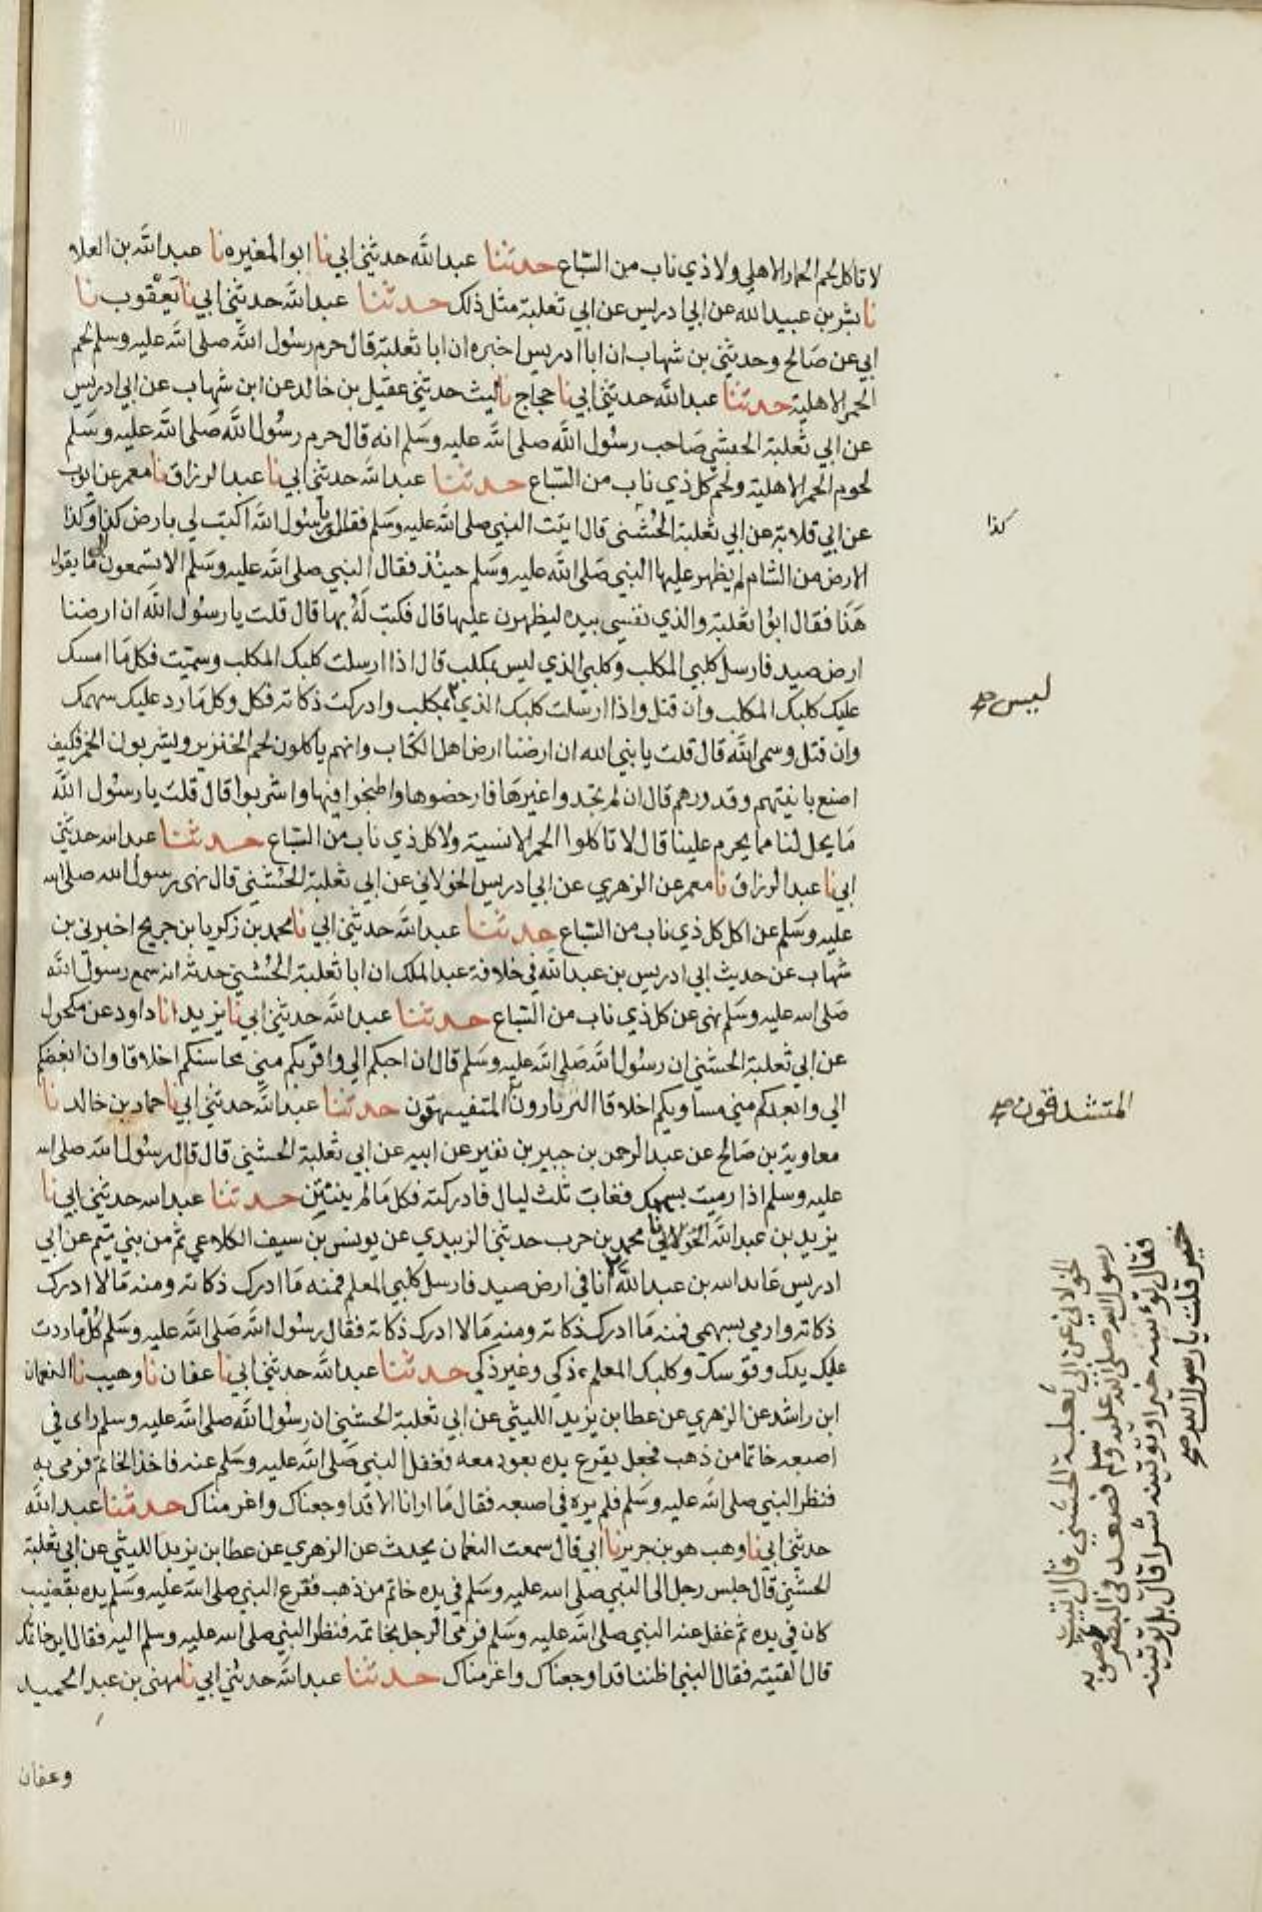 لا تاكل لحم الحمار الاهلي ولا ذي ناب من السّباع حدثنا عبد الله حدثني ابي نا ابو المغيره نا عبد الله بن العلاء
نا بشر بن عبيد الله عن ابي ادريس عن ابي ثعلبة مثل ذلك حدثنا عبد الله حدثني ابي نا يعقوب نا
ابي عن صالح وحدثني بن شهاب ان ابا ادريس اخبره ان ابا ثعلبة قال حرم رسول الله صلى الله عليه وسلم لحم
الحمر الاهلية حدثنا عبد الله حدثني ابي نا حجاج نا ليث حدثني عقيل بن خالد عن ابن شهاب عن ابي ادريس
عن ابي ثعلبة الخشني صاحب رسول الله صلى الله عليه وسلم انه قال حرم رسول الله صلى الله عليه وسلم
لحوم الحمر الاهلية ولحم كل ذي ناب من السّباع حدثنا عبد الله حدثني ابي نا عبد الرزاق نا معمر عن ايوب
عن ابي قلابة عن ابي ثعلبة الخُشَني قال اتيت النبي صلى الله عليه وسلم فقلت يا رسول الله اكتب لي بارض كذا وكذا
الارض من الشام لم يظهر عليها النبي صلى الله عليه وسلم حينئذ فقال النبي صلى الله عليه وسلم الا تسمعون الى ما يقول
هَذا فقال ابو ثعلبة والذي نفسي بيده ليظهرن عليها قال فكتب لَهُ بها قال قلت يا رسول الله ان ارضنا
ارض صيد فارسل كلبي المكلب وكلبي الذي ليس بمكلب قال اذا ارسلت كلبك المكلب وسميّت فكل ما امسك
عليك كلبك المكلب وان قتل واذا ارسلت كلبك الذي بمكلب وادركت ذكاته فكل وكل ما رد عليك سهمك
وان قتل وسمى الله قال قلت يا نبي الله ان ارضنا ارض اهل الكتاب وانهم ياكلون لحم الخنزير ويشربون الخمر فكيف
اصنع بانيتهم وقدورهم قال ان لم تجدوا غيرها فارحضوها واطبخوا فيها واشربوا قال قلت يا رسول الله
ما يحل لنا مما يحرم علينا قال لا تاكلوا الحمر الانسية ولا كل ذي ناب من السّباع حدثنا عبد الله حدثني
ابي نا عبد الرزاق نا معمر عن الزهري عن ابي ادريس الخولاني عن ابي ثعلبة الخشني قال نهى رسول الله صلى الله
عليه وسلم عن اكل كل ذي ناب من السّباع حدثنا عبد الله حدثني ابي نا محمد بن زكريا بن جريج اخبرني بن
شهاب عن حديث ابي ادريس بن عبد الله في خلافة عبد الملك ان ابا ثعلبة الخُشني حدثه انه سمع رسول الله
صلى الله عليه وسلم نهى عن كل ذي ناب من السّباع حدثنا عبد الله حدثني ابي نا يزيد انا داود عن مكحول
عن ابي ثعلبة الخشني ان رسول الله صلى الله عليه وسلم قال ان احبكم الي واقربكم مني محاسنكم اخلاقا وان ابغضكم
الي وابعدكم مني مساويكم اخلاقا الثرثارون المتفيهقون حدثنا عبد الله حدثني ابي نا حماد بن خالد نا
معاوية بن صالح عن عبد الرحمن بن جبير بن نفير عن ابيه عن ابي ثعلبة الخشني قال قال رسول الله صلى الله
عليه وسلم اذا رميت بسهمك فغاب ثلث ليال فادركته فكل ما لم ينتن حدثنا عبد الله حدثني ابي نا
يزيد بن عبد الله الخولاني نا محمد بن حرب حدثني الزبيدي عن يونس بن سيف الكلاعي ثم من بني تيم عن ابي
ادريس عائد الله بن عبد الله انا في ارض صيد فارسل كلبي المعلم فمنه ما ادرك ذكاته ومنه ما لا ادرك
ذكاته وارمي بسهمي فمنه ما ادرك ذكاته ومنه ما لا ادرك ذكاته فقال رسول الله صلى الله عليه وسلم كُلْ ما ردت
عليك يدك وقوسك وكلبك المعلم ذكي وغير ذكي حدثنا عبد الله حدثني ابي نا عفان نا وهيب نا النعمان
ابن راشد عن الزهري عن عطا بن يزيد الليثي عن ابي ثعلبة الخشني ان رسول الله صلى الله عليه وسلم راى في
اصبعه خاتما من ذهب فجعل يقرع يده بعود معه فغفل النبي صلى الله عليه وسلم عنه فاخذ الخاتم فرمى به
فنظر النبي صلى الله عليه وسلم فلم يره في اصبعه فقال ما ارانا الا قد اوجعناك واغرمناك حدثنا عبد الله
حدثني ابي نا وهب هو بن جرير نا ابي قال سمعت النعمان يحدث عن الزهري عن عطا بن يزيد الليثي عن ابي ثعلبة
الخشني قال جلس رجل الى النبي صلى الله عليه وسلم في يده خاتم من ذهب فقرع النبي صلى الله عليه وسلم يده بقضيب
كان في يده ثم غفل عنه النبي صلى الله عليه وسلم فرمى الرجل بخاتمه فنظر النبي صلى الله عليه وسلم اليه فقال اين خاتمك
قال القيته فقال النبي اظننا قد اوجعناك واغرمناك حدثنا عبد الله حدثني ابي نا مهنى بن عبد الحميد
وعفان
كذا
ليس صح
المتشدقون صح
الخولاني عن ابي ثعلبة الخشني قال اتيت
رسول الله صلى الله عليه وسلم فصعد في البصر وصوبه
فقال نويبتة خير او نويبتة شر قال بل نويبتة
خير قلت يا رسول الله صح